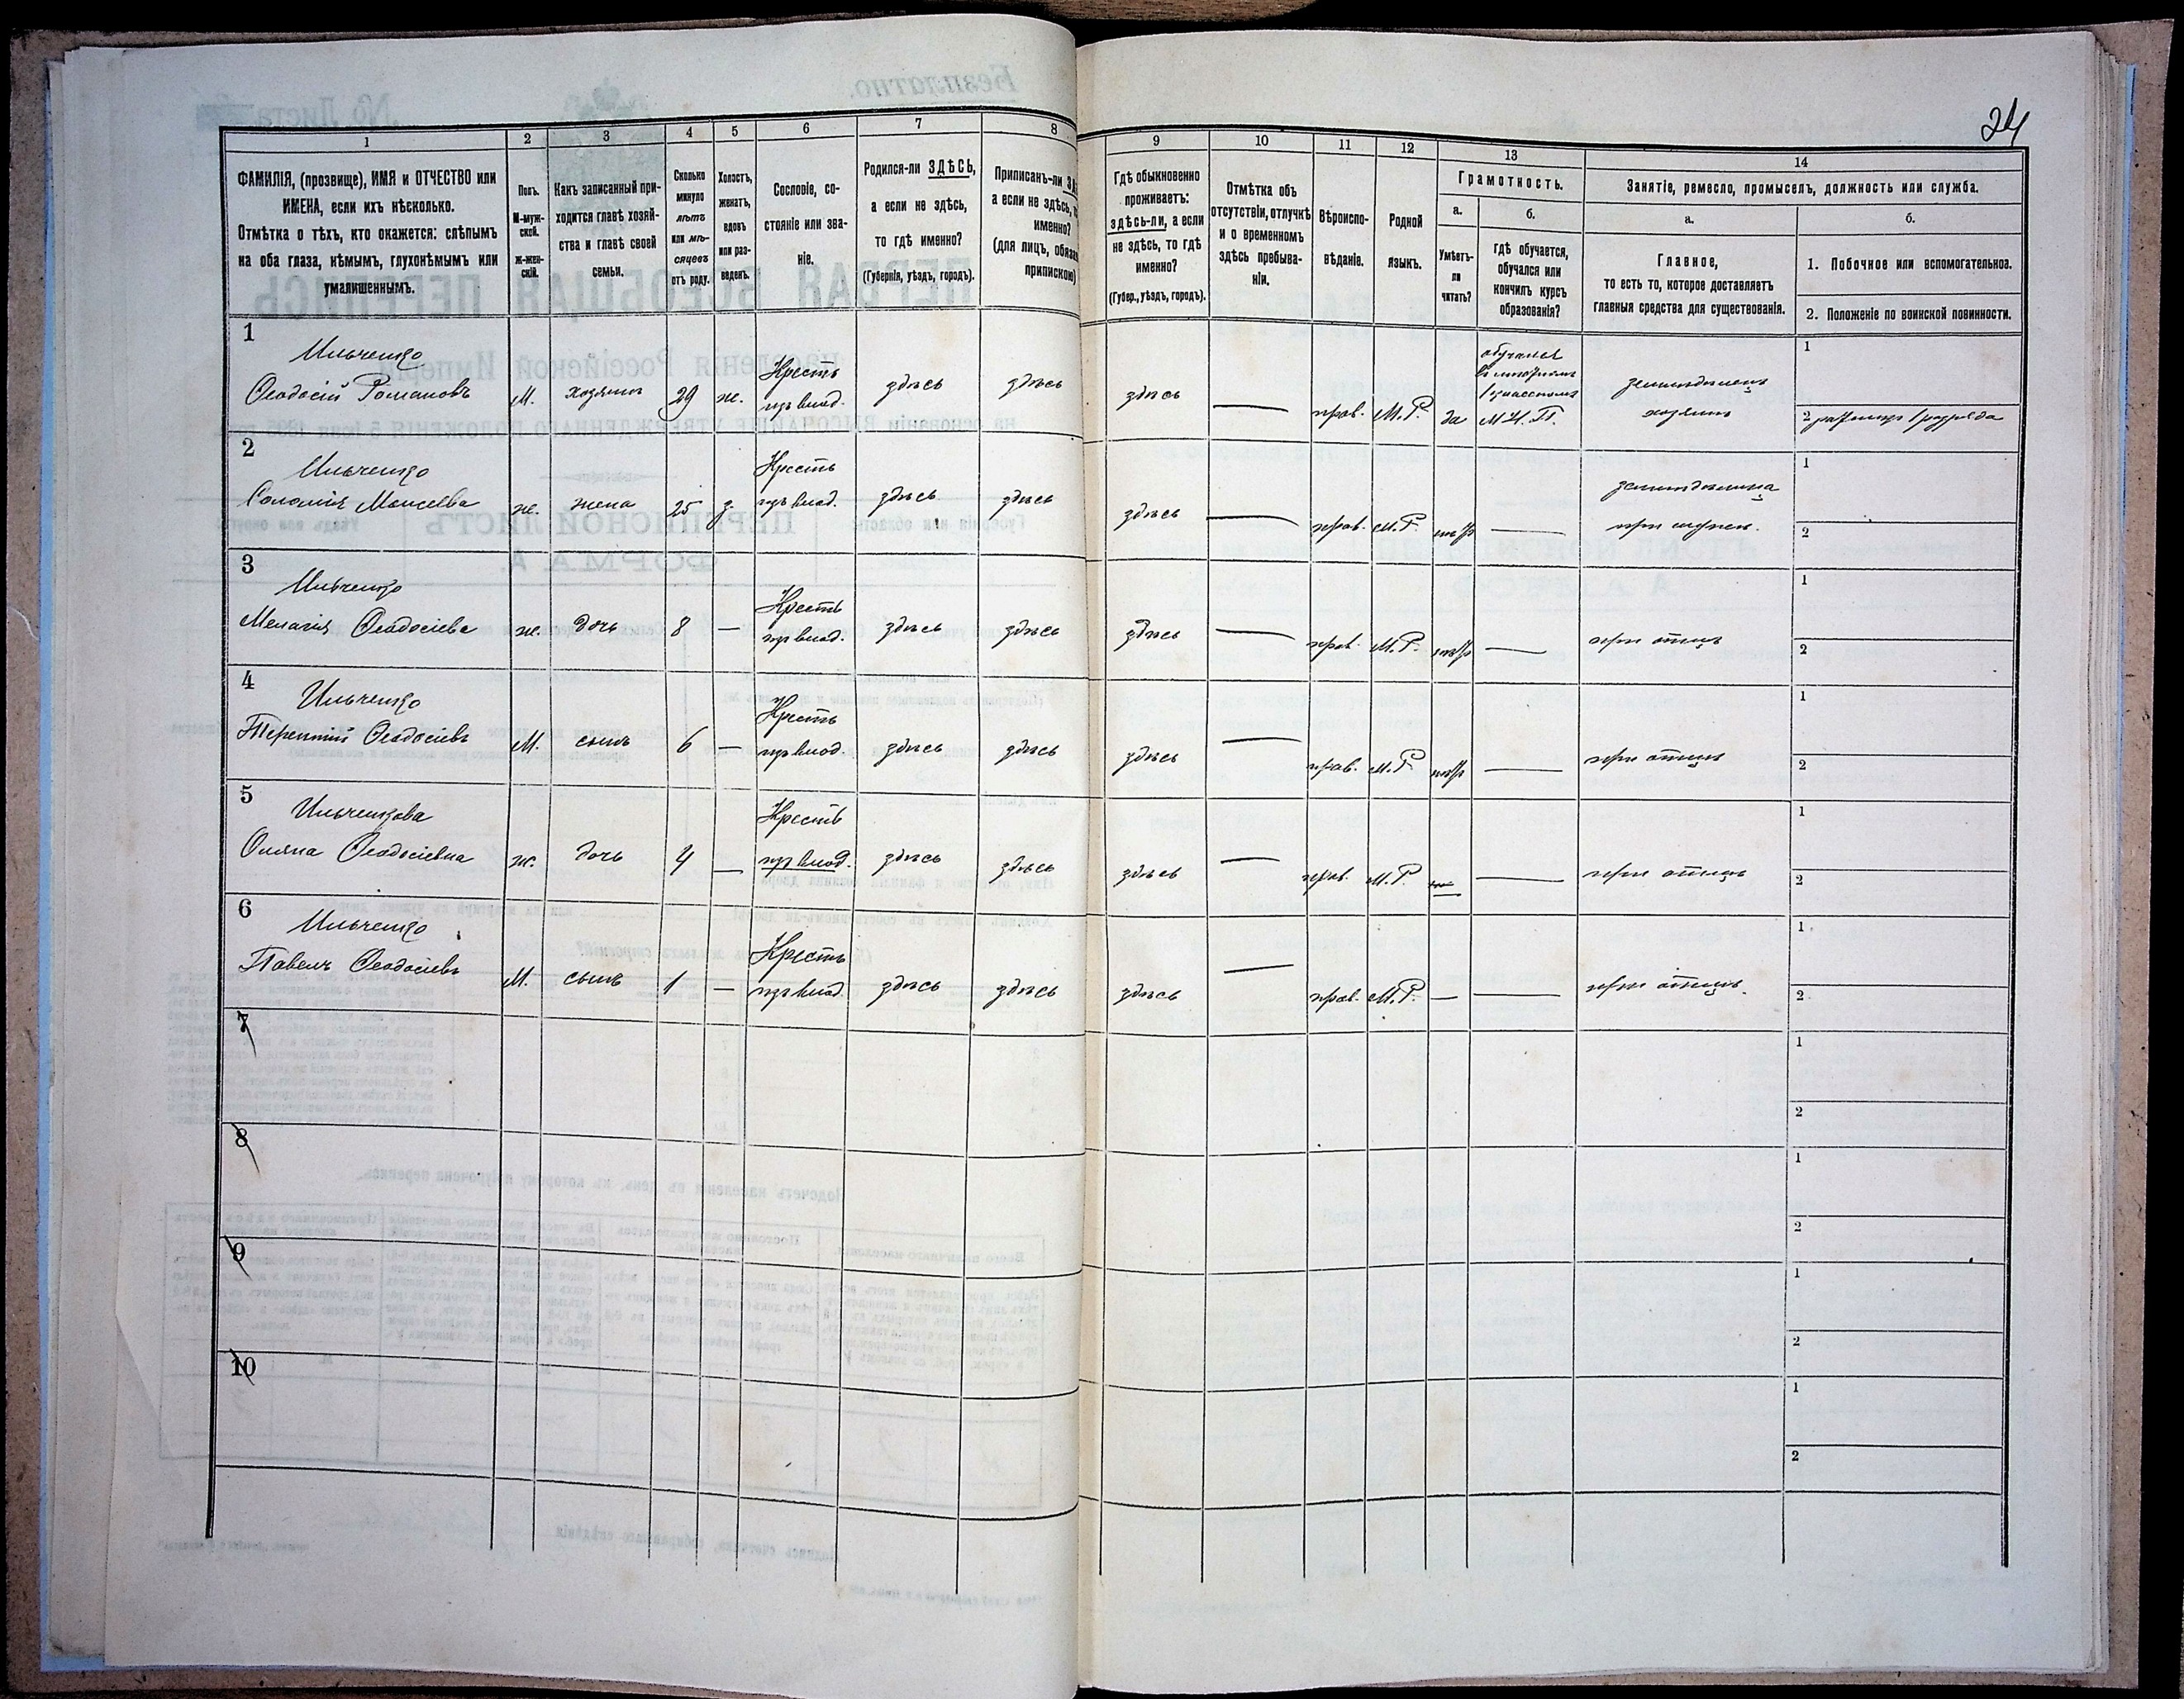 24
1
2
3
4
5
6
7
8
9
10
11
12
13
14
ФАМИЛІЯ, (прозвище), ИМЯ и ОТЧЕСТВО или
ИМЕНА, если ихъ нѣсколько.
Отмѣтка о тѣхъ, кто окажется: слѣпымъ
на оба глаза, нѣмымъ, глухонѣмымъ или
умалишеннымъ.
Полъ.
М-муж-
ской.
Ж-жен-
скій.
Какъ записанный при-
ходится главѣ хозяй-
ства и главѣ своей
семьи.
Сколько
минуло
лѣтъ
или мѣ-
сяцевъ
отъ роду.
Холостъ,
женатъ,
вдовъ
или раз-
веденъ.
Сословіе, со-
стояніе или зва-
ніе.
Родился-ли ЗДѢСЬ,
а если не здѣсь,
то гдѣ именно?
(Губернія, уѣздъ, городъ).
Приписанъ-ли
а если не здѣсь,
именно?
(для лицъ,
припискою)
Гдѣ обыкновенно
проживаетъ:
здѣсь-ли, а если
не здѣсь, то гдѣ
именно?
(Губер., уѣздъ, городъ).
Отмѣтка объ
отсутствіи, отлучкѣ
и о временномъ
здѣсь пребыва-
ніи.
Вѣроиспо-
вѣданіе.
Родной
языкъ.
Грамотность.
а.
Умѣетъ-
ли
читать?
б.
гдѣ обучается,
обучался или
кончилъ курсъ
образованія?
Занятіе, ремесло, промыселъ, должность или служба.
а.
Главное,
то есть то, которое доставляетъ
главныя средства для существованія.
б.
1. Побочное или вспомогательное.
2. Положеніе по воинской повинности.
1
Ильченко
Ѳеодосій Романовъ
М. хозяинъ 29 ж. Крестъ
изъ влад. здѣсь здѣсь здѣсь — прав. М.Р. да
обучался
М.Н.П.
земледѣлецъ
хозяинъ
1
2
2
Ильченко
Соломія Моисеева
ж. жена 25 з. Крестъ
изъ влад. здѣсь здѣсь здѣсь — прав. М.Р. —
1
2
3
Ильченко
Мелагія Ѳеодосіева
ж. дочь 8 — Крестъ
изъ влад. здѣсь здѣсь здѣсь — прав. М.Р. — при отцѣ
1
2
4
Ильченко
Терентій Ѳеодосіевъ
М. сынъ 6 — Крестъ
изъ влад. здѣсь здѣсь здѣсь — прав. М.Р. — при отцѣ
1
2
5
Ильченкова
Ѳеодосіевна
ж. дочь 4 — Крестъ
изъ влад. здѣсь здѣсь здѣсь — прав. М.Р. — при отцѣ
1
2
6
Ильченко
Павелъ Ѳеодосіевъ
М. сынъ 1 — Крестъ
изъ влад. здѣсь здѣсь здѣсь — прав. М.Р. — — при отцѣ
1
2
7
1
2
8
1
2
9
1
2
10
1
2